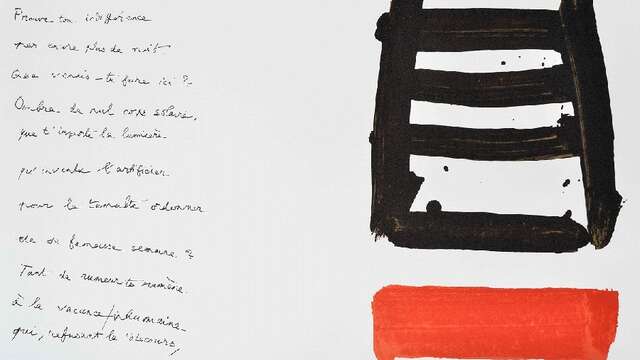 Prouve ton indifférence
par encore plus de nuit.
Que venais-tu faire ici ?
Ombre de nul corps solaire,
que t'importe la lumière
qu'inventa l'artificier
pour le tumulte ordonner
de sa fameuse semaine ?
Tant de rumeur te ramène
à la vacance inhumaine
qui, refusant le discours,